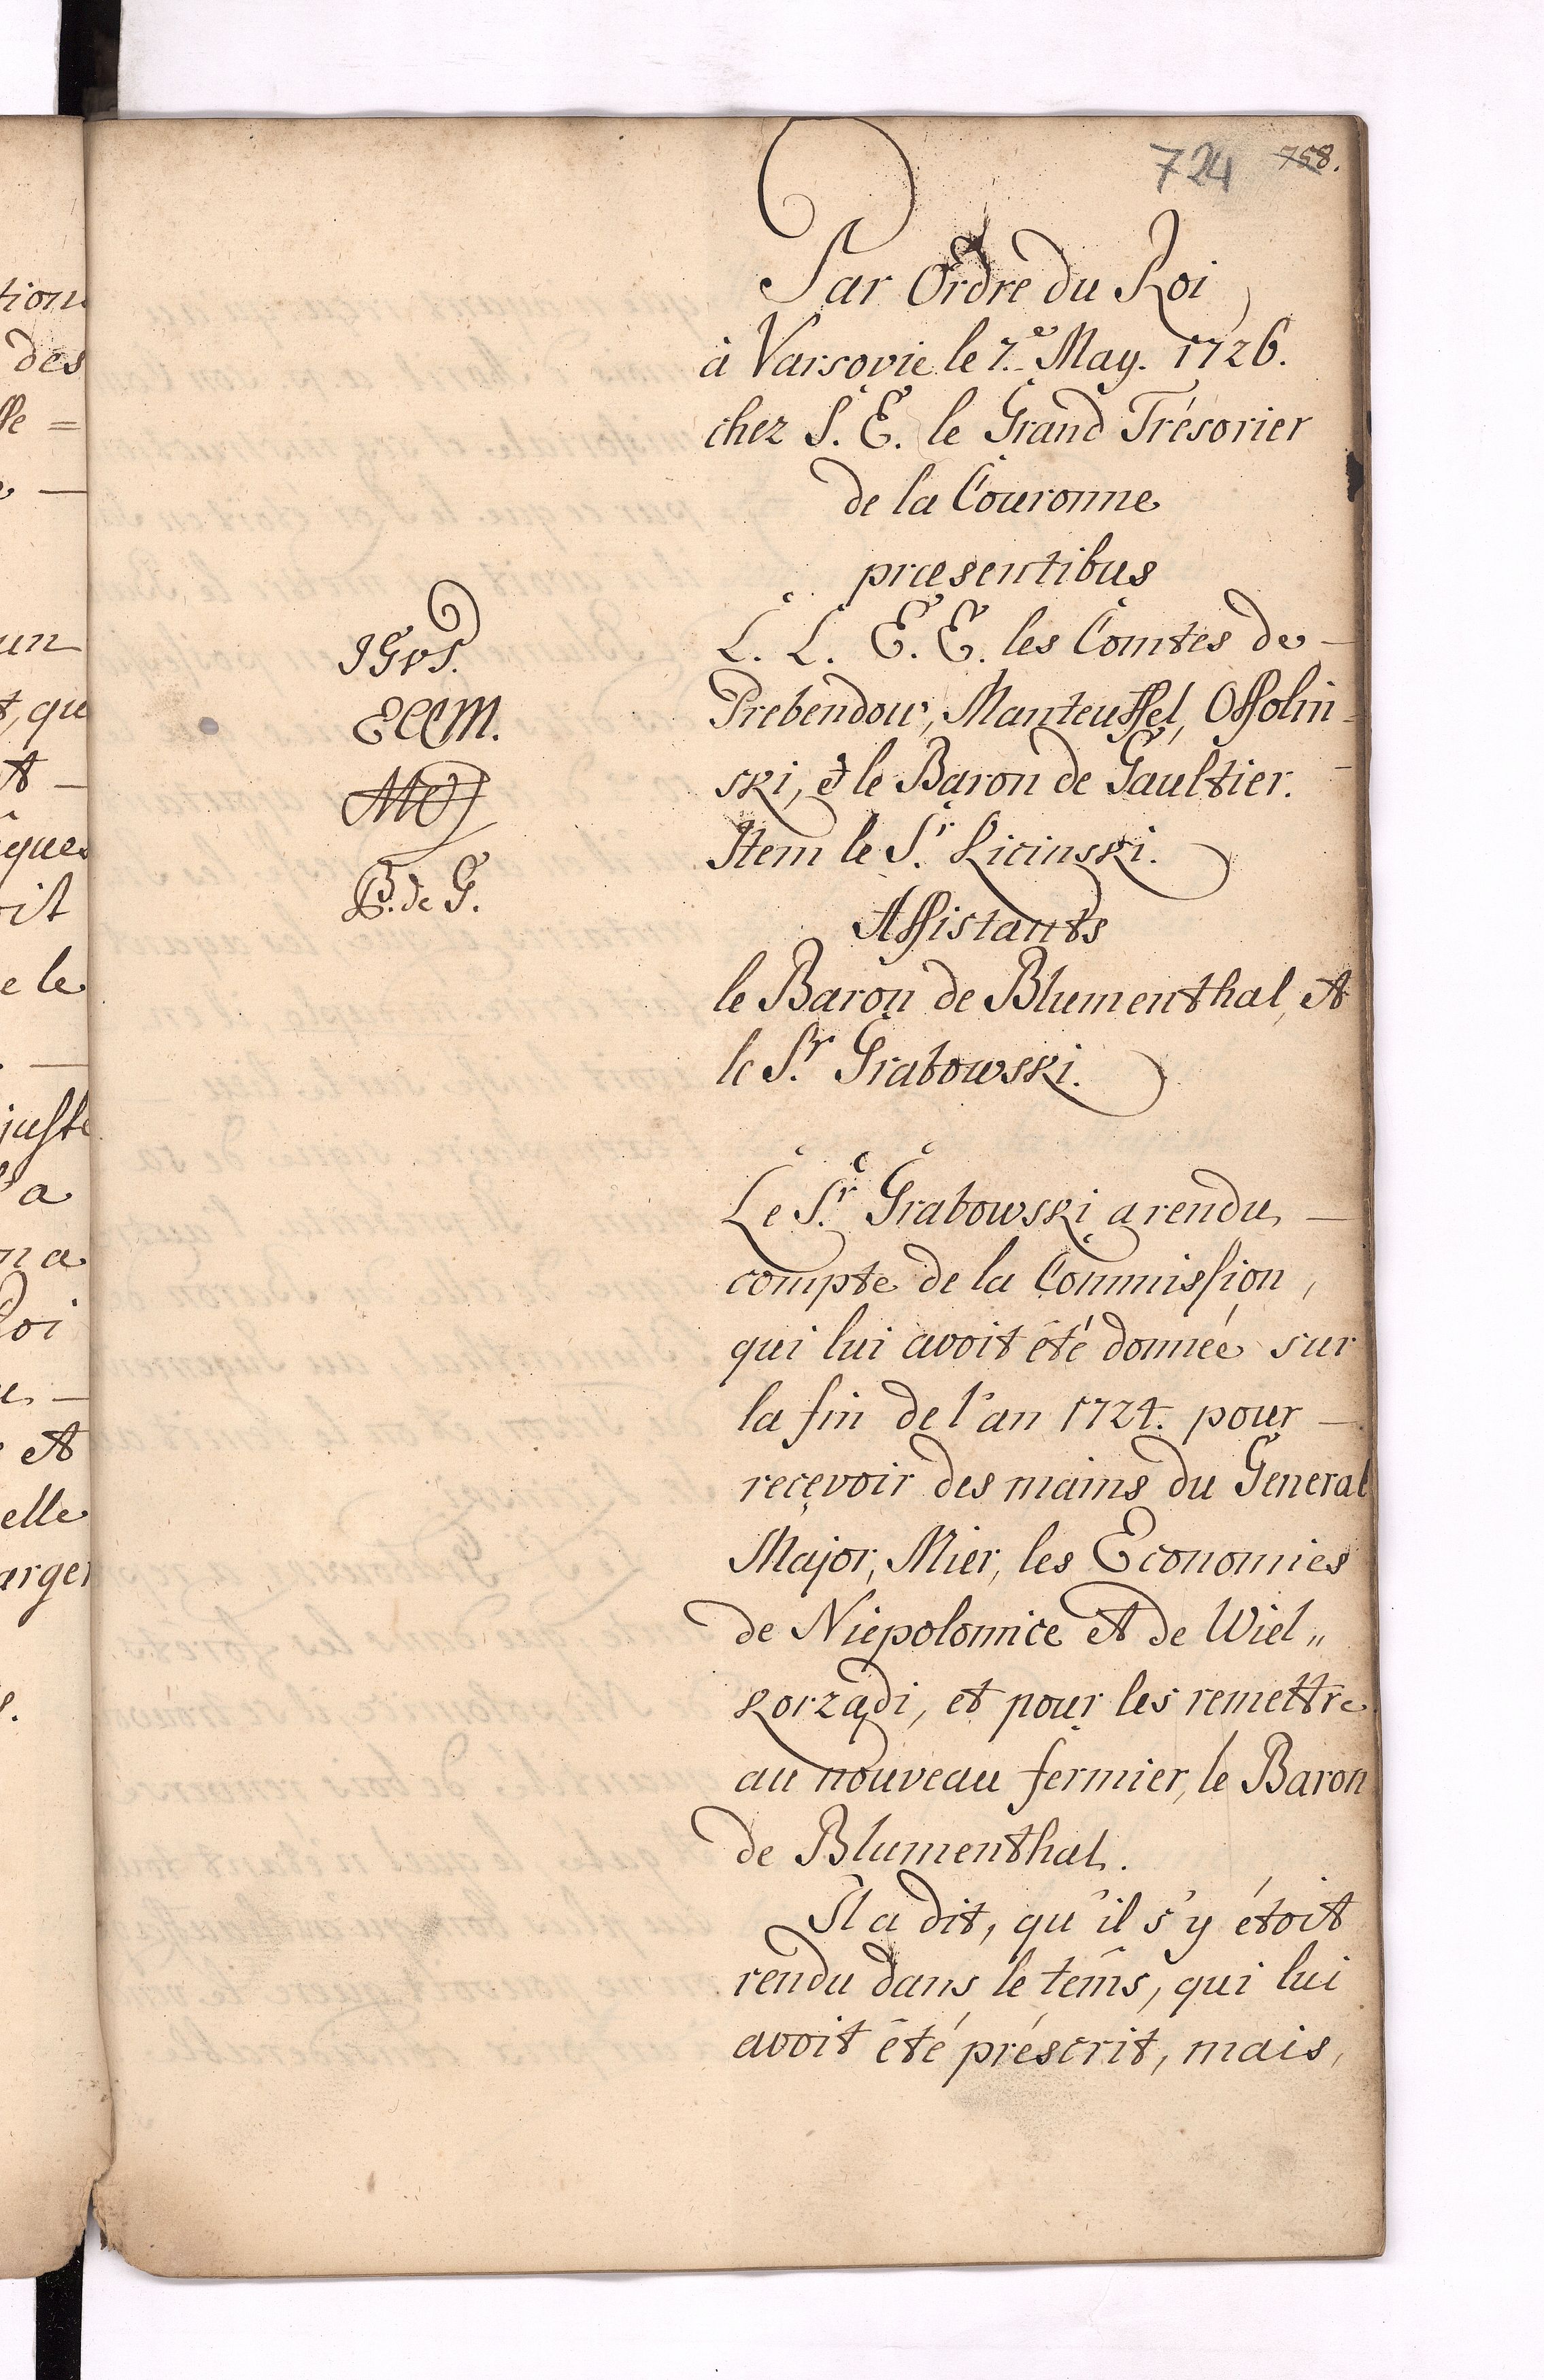 724 758.
Par Ordre du Roi
à Varsovie le 7.e May. 1726.
chez S. E. le Grand Trésorier
de la Couronne
præsentibus
L. L. E. E. les Comtes de —
Prebendow, Manteuffel, Ossolin-
ski, et le Baron de Gaultier. —
Item le S.r Licinski.
Assistants
le Baron de Blumenthal, et
le S.r Grabowski.
JGvS.
ECCM.
B. de G.
Le S.r Grabowski a rendu —
compte de la Commission,
qui lui avoit êté donnée sur
la fin de l'an 1724. pour —
recevoir des mains du General
Major, Mier, les Economies
de Niepolomice et de Wiel„
korządi, et pour les remettre
au nouveau fermier, le Baron
de Blumenthal.
Il a dit, qu'il s'y étoit
rendu dans le tems, qui lui
avoit êté préscrit, mais,
tion
des
un
t, qu
ques
oit
e le
juste
a
n a
Roi
et
elle
arge